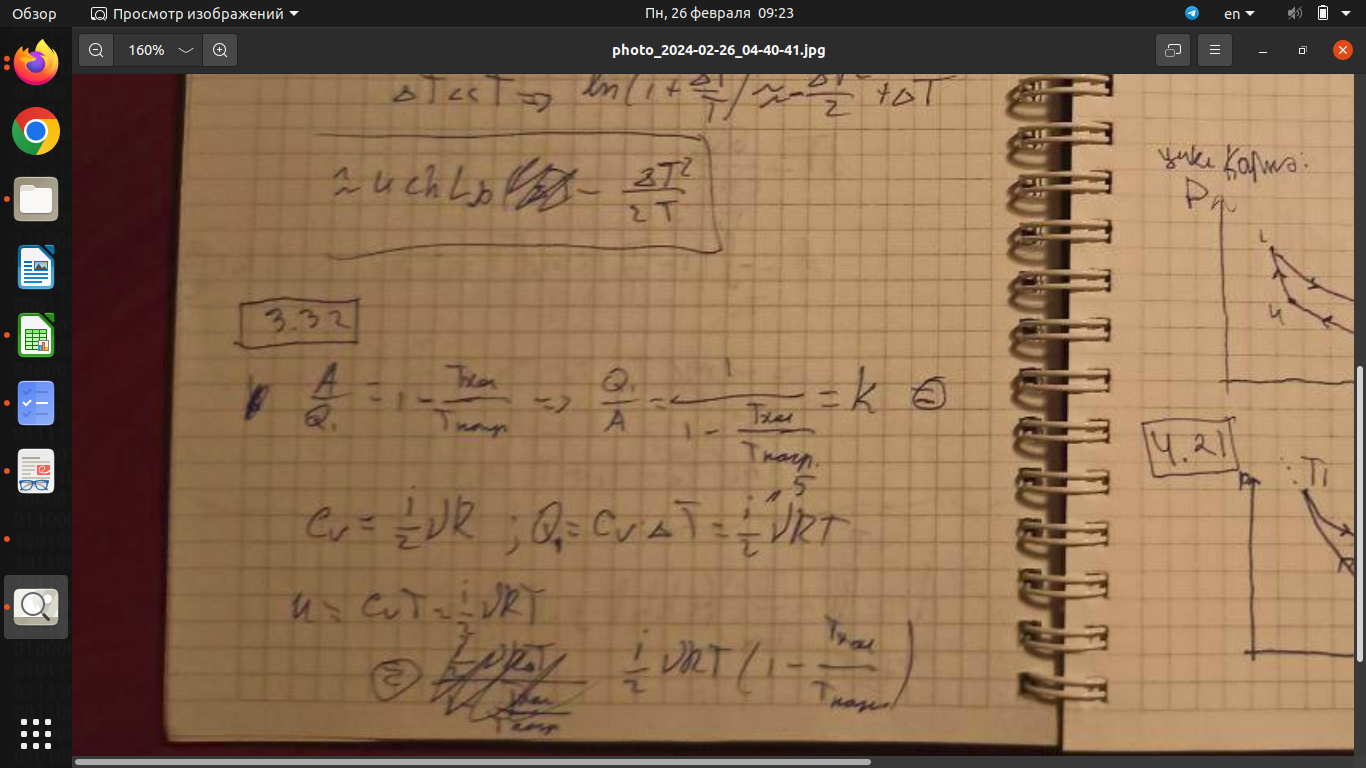 Обзор Просмотр изображений Пн, 26 февраля 09:23 en
160% photo_2024-02-26_04-40-41.jpg
ΔT<<T => ln(1+ΔT/T) ≈ -ΔT²/2 + ΔT
- ΔT²/2T
3.32
A/Q₁ = 1 - Tхол/Tнагр => Q₁/A = 1/(1 - Tхол/Tнагр.) = k ⊜
5
Cv = i/2 νR ; Q₁ = Cv ΔT = i/2 νRT
u = CvT = i/2 νRT
⊜ i/2 νRT (1 - Tхол/Tнагр)
цикл Карно:
P
4
4.21
P
T1